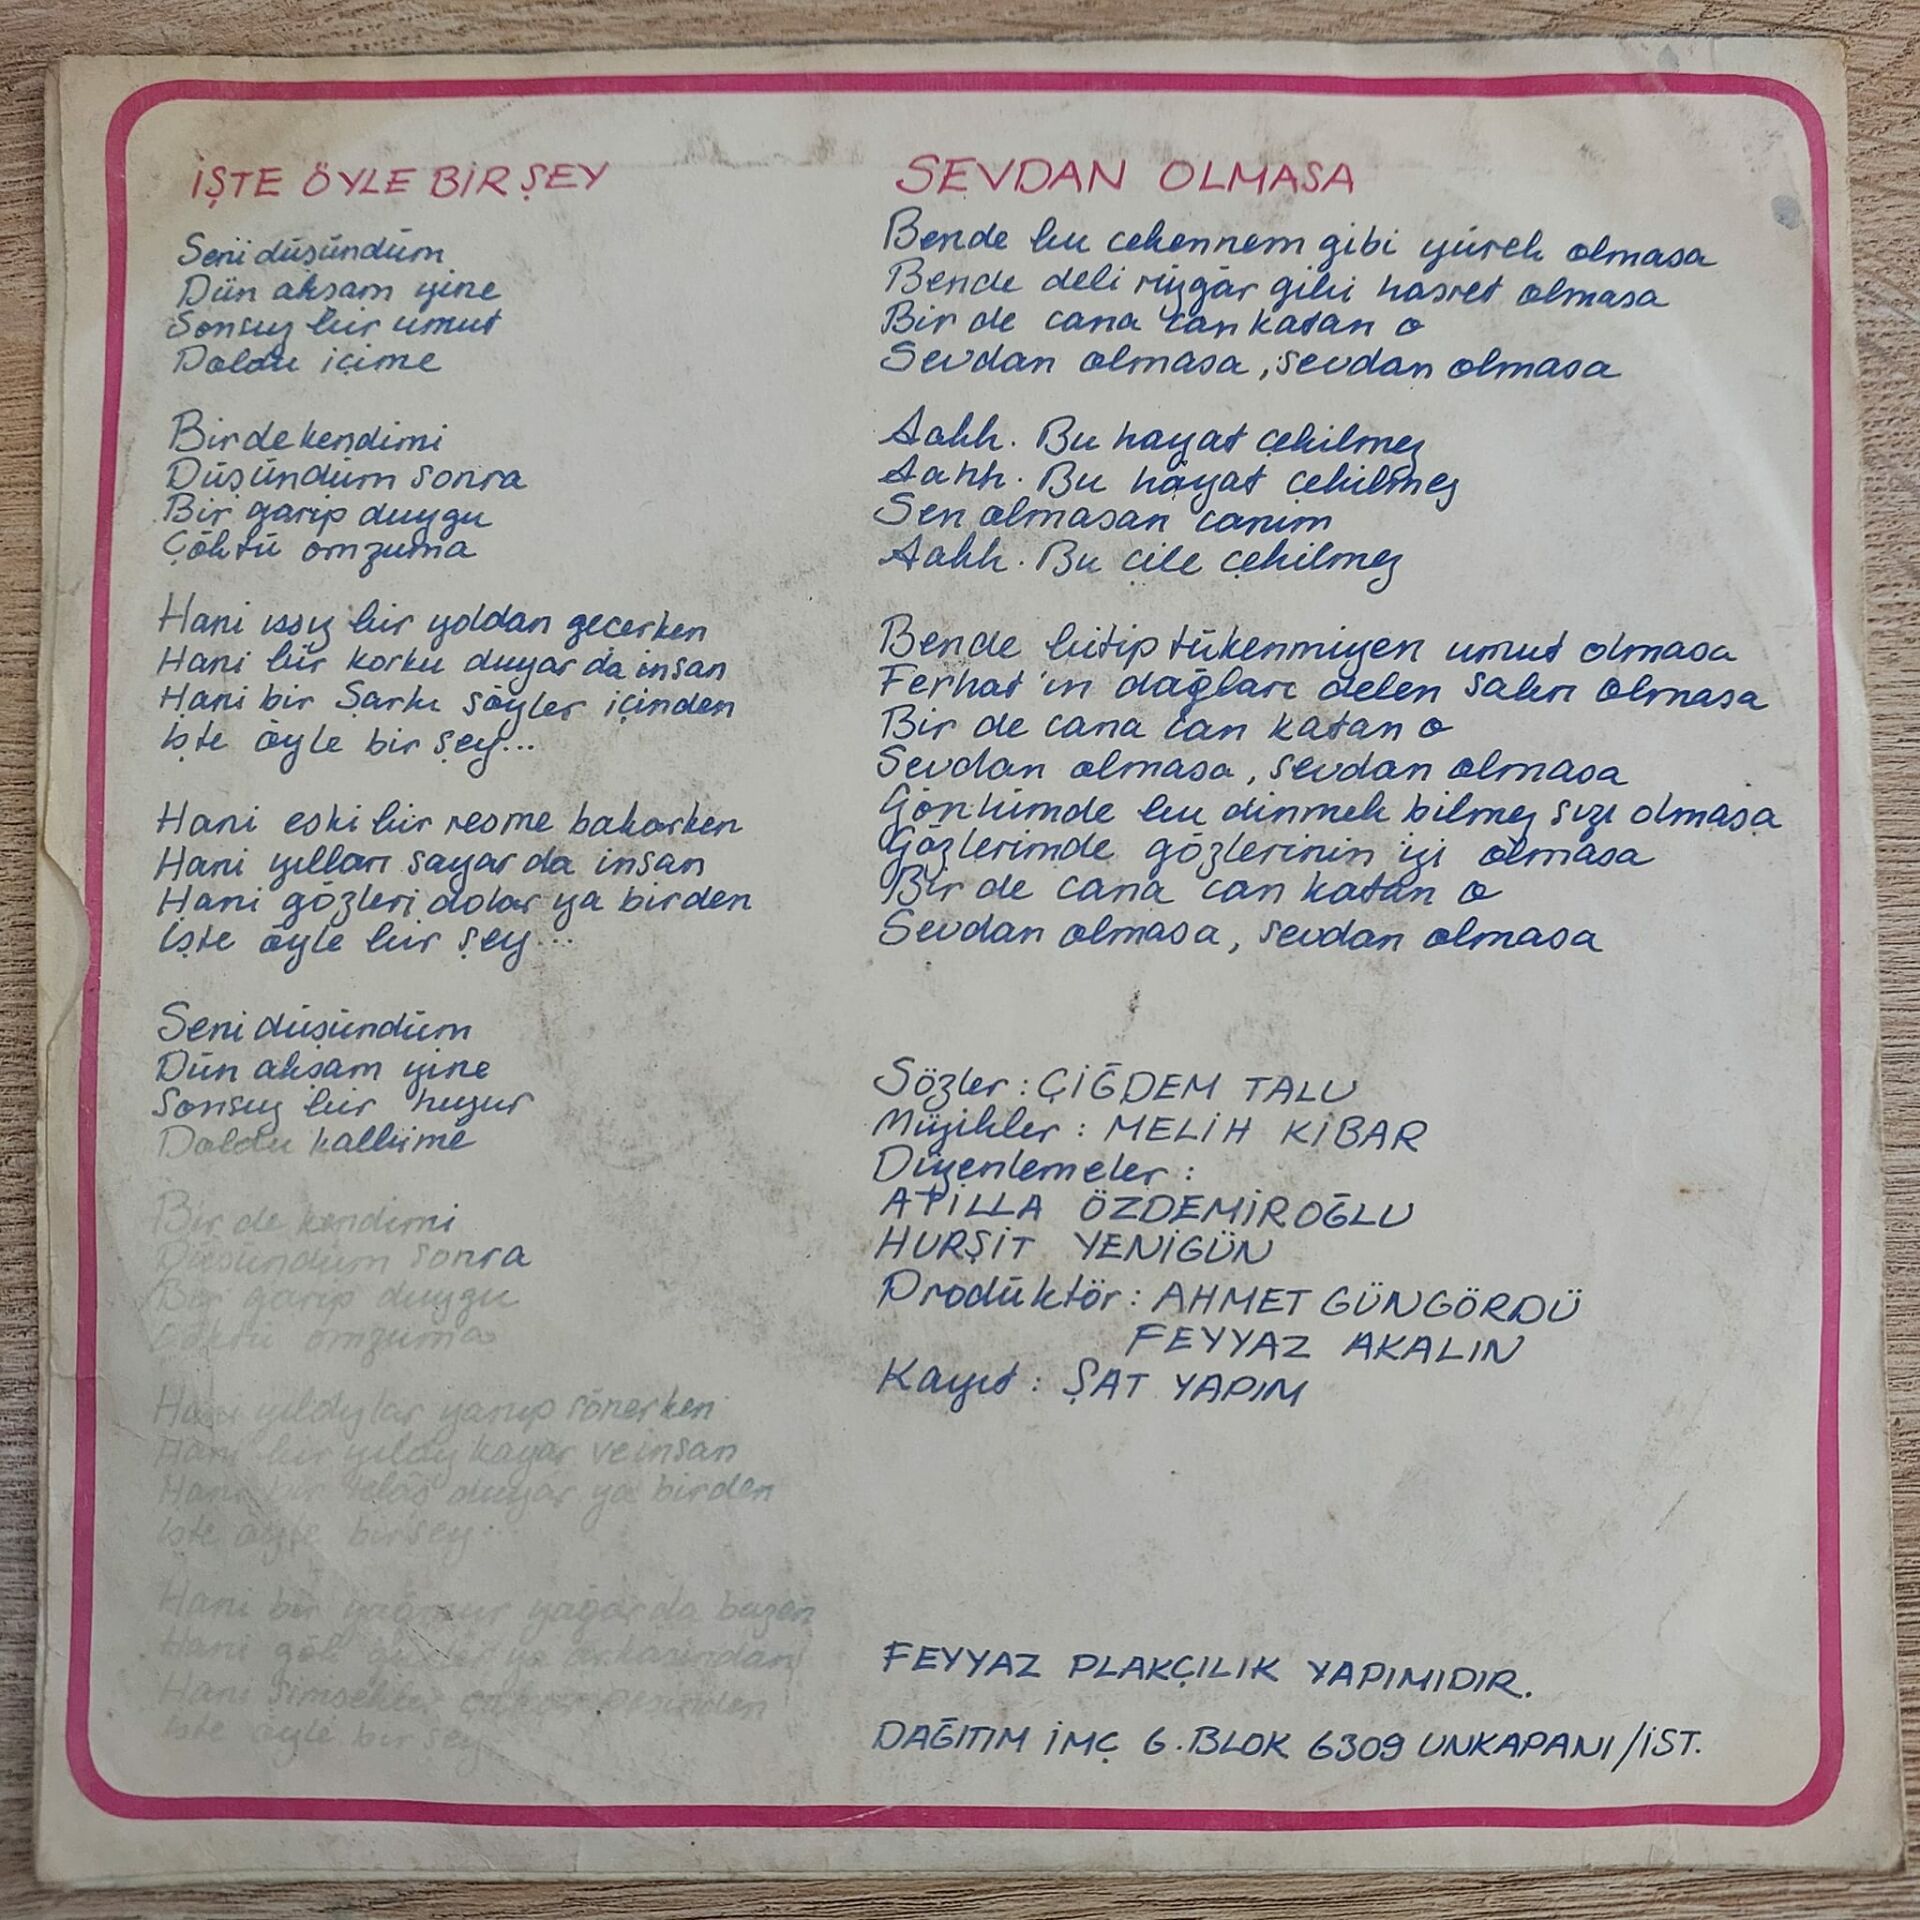 İŞTE ÖYLE BİR ŞEY
Seni düşündüm
Dün akşam yine
Sonsuz bir umut
Doldu içime
Bir de kendimi
Düşündüm sonra
Bir garip duygu
Çöktü omzuma
Hani ıssız bir yoldan geçerken
Hani bir korku duyar da insan
Hani bir Şarkı söyler içinden
İşte öyle bir şey...
Hani eski bir resme bakarken
Hani yılları sayar da insan
Hani gözleri dolar ya birden
İşte öyle bir şey...
Seni düşündüm
Dün akşam yine
Sonsuz bir huzur
Doldu kalbime
Bir de kendimi
Düşündüm sonra
Bir garip duygu
Çöktü omzuma
Hani yıldızlar yanıp sönerken
Hani bir yıldız kayar ve insan
Hani bir telaş duyar ya birden
İşte öyle bir şey
Hani bir yağmur yağar da bazen
Hani gök gürler ya arkasından
Hani şimşekler çakar peşinden
İşte öyle bir şey
SEVDAN OLMASA
Bende bu cehennem gibi yürek olmasa
Bende deli rüzgâr gibi hasret olmasa
Bir de cana can katan o
Sevdan olmasa, sevdan olmasa
Aahh. Bu hayat çekilmez
Aahh. Bu hayat çekilmez
Sen olmasan canım
Aahh. Bu çile çekilmez
Bende bitip tükenmiyen umut olmasa
Ferhat'ın dağları delen sabrı olmasa
Bir de cana can katan o
Sevdan olmasa, sevdan olmasa
Gönlümde bu dinmek bilmez sızı olmasa
Gözlerimde gözlerinin izi olmasa
Bir de cana can katan o
Sevdan olmasa, sevdan olmasa
Sözler: ÇİĞDEM TALU
Müzikler: MELİH KİBAR
Düzenlemeler:
ATİLLA ÖZDEMİROĞLU
HURŞİT YENİGÜN
Prodüktör: AHMET GÜNGÖRDÜ
FEYYAZ AKALIN
Kayıt: ŞAT YAPIM
FEYYAZ PLAKÇILIK YAPIMIDIR.
DAĞITIM İMÇ 6. BLOK 6309 UNKAPANI/İST.